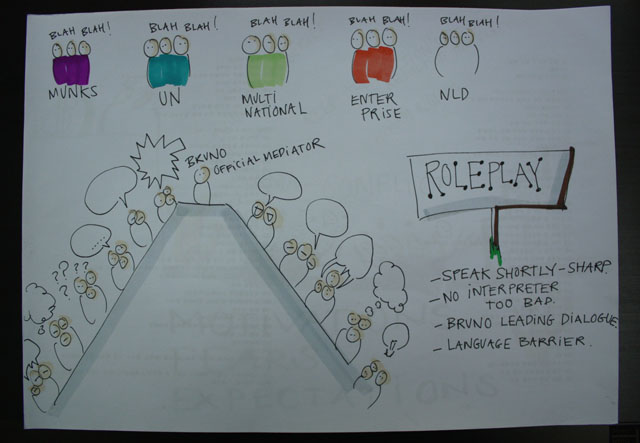 BLAH BLAH!
BLAH BLAH!
BLAH BLAH!
BLAH BLAH!
BLAH BLAH!
MUNKS
UN
MULTI
NATIONAL
ENTER
PRISE
NLD
BRUNO
OFFICIAL MEDIATOR
ROLEPLAY
???
?
- SPEAK SHORTLY - SHARP.
- NO INTERPRETER
TOO BAD.
- BRUNO LEADING DIALOGUE
- LANGUAGE BARRIER.
EXPECTATIONS